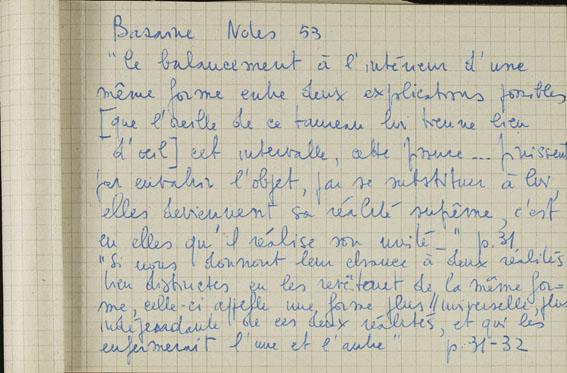 Bazaine Notes 53
"Ce balancement à l'intérieur d'une
même forme entre deux explications possibles
[que l'oreille de ce taureau lui tienne lieu
d'oeil] cet intervalle, cette ... puissent
par envahir l'objet, par se substituer à lui,
elles deviennent sa réalité suprême, c'est
en elles qu'il réalise son unité_" p.31
"Si nous donnont leur chance à deux réalités
bien distinctes en les revêtant de la même for-
me, celle-ci appelle une forme plus universelle, plus
indépendante de ces deux réalités, et qui les
enfermerait l'une et l'autre" p.31-32